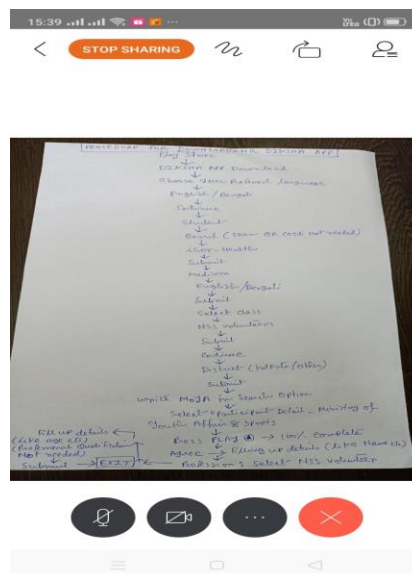 15:39
STOP SHARING
PROCEDURE FOR DOWNLOADING DIKSHA APP
Play Store
DIKSHA APP Download
Choose Your Prefered language
English / Bengali
Continue
Student
Board (Scan QR Code not needed)
iGOT-Health
Submit
Medium
English / Bengali
Submit
Select class
NSS volunteers
Submit
Continue
District - (Kolkata / others)
Submit
Write MoYA in Search Option
Select Participant Detail - Ministry of
Youth Affair & Sports
Press PLAY → 100% complete
Agree → Filling up details (like Name etc)
Profession's Select - NSS Volunteer
Fill up details
(like age etc)
(Professional Qualification
Not needed)
Submit → EXIT